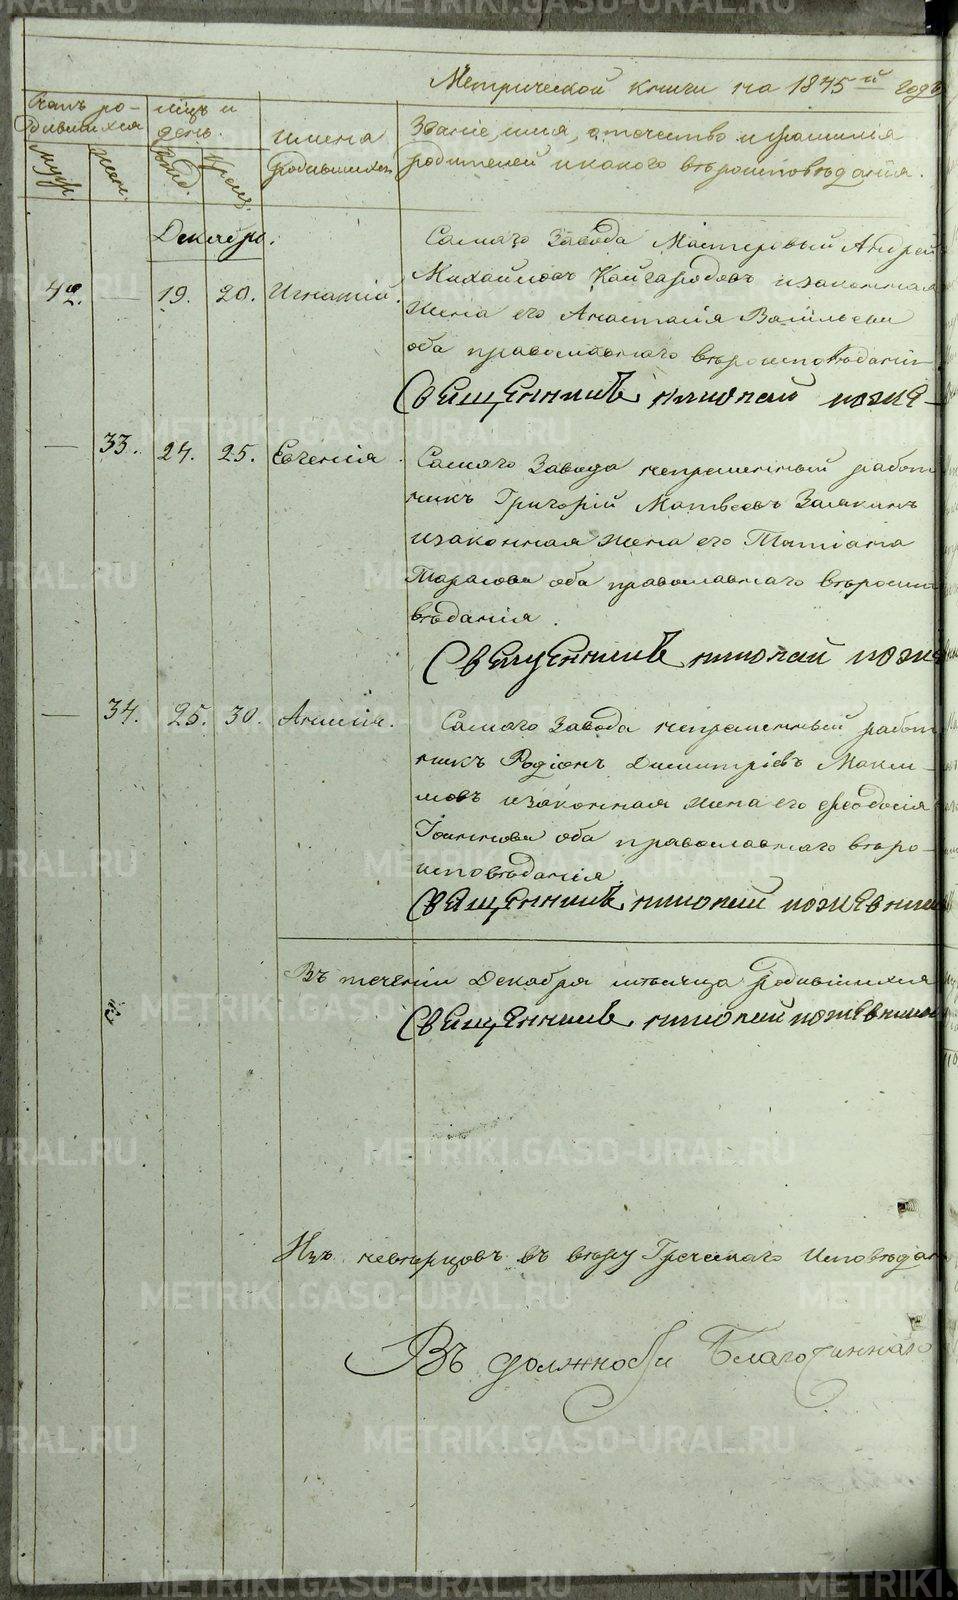 Метрической книги на 1845й годъ
Счетъ ро-
дившихся
муж.
жен.
мцъ и
день.
рожд.
крещ.
имена
родившихся
Званіе, имя, отечество и фамилія
родителей и какого вѣроисповѣданія.
Декабрь.
42. — 19. 20. Игнатій.
Самаго Завода Мастеровый Андрей
Михайловъ Кайгародовъ и законная
жена его Анастасія Васильева
оба православнаго вѣроисповѣданія
Священникъ николай пожев-
— 33. 24. 25. Евгенія.
Самаго Завода непременный работ
никъ Григорій Матвеевъ
и законная жена его Татіана
Тарасова оба православнаго вѣроиспо
вѣданія.
Священникъ николай поже
— 34. 25. 30. Анисія.
Самаго Завода непременный работ
никъ Родіонъ Димитріевъ Макси-
мовъ и законная жена его Феодосія
Іоаннова оба православнаго вѣро-
исповѣданія.
Священникъ николай пожевник
Въ теченіи Декабря мѣсяца родившихся
Священникъ николай пожевник
Изъ невѣрцовъ въ вѣру Греческаго Исповѣдан
Въ должности Благочиннаго
METRIKI.GASO-URAL.RU